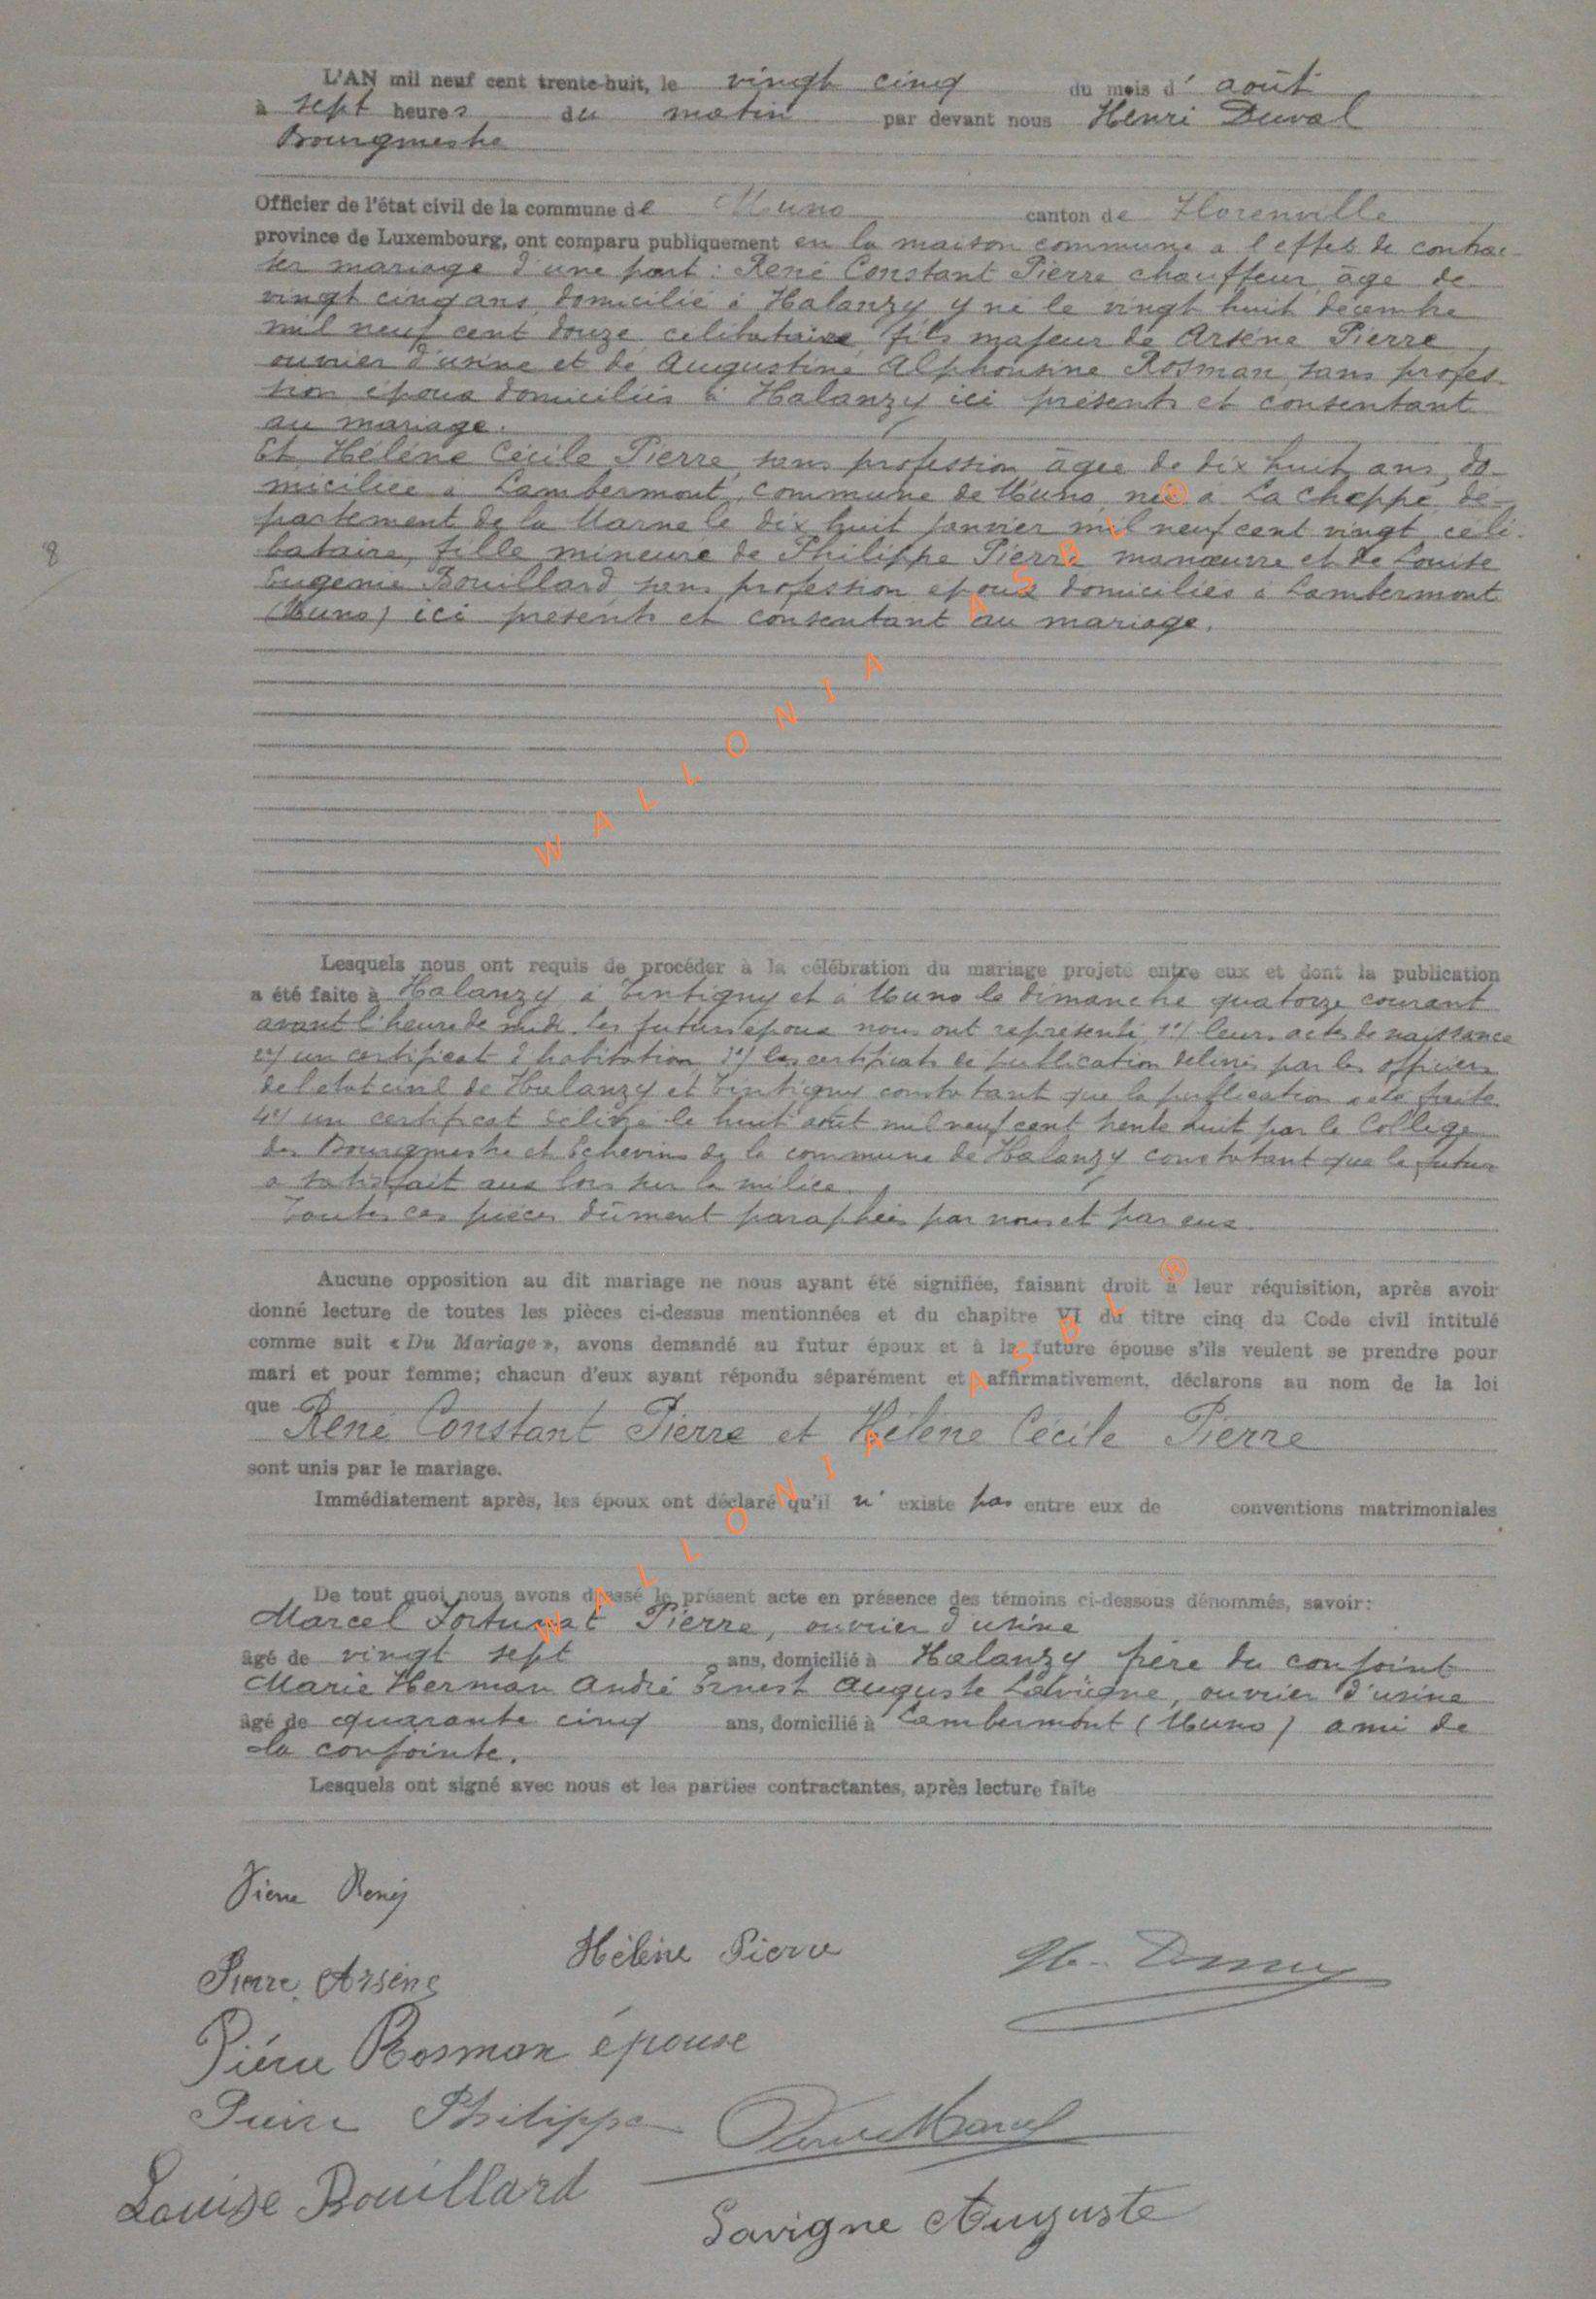 L'AN mil neuf cent trente-huit, le vingt cinq du mois d' août
à sept heures du matin par devant nous Henri Duval
Bourgmestre
Officier de l'état civil de la commune de Muno canton de Florenville
province de Luxembourg, ont comparu publiquement en la maison commune a l'effet de contrac-
ter mariage d'une part : René Constant Pierre chauffeur âge de
vingt cinq ans, domicilié à Halanzy y né le vingt huit décembre
mil neuf cent douze, célibataire, fils majeur de Arsène Pierre,
ouvrier d'usine et de Augustine Alphonsine Rosman, sans profes-
sion époux domiciliés à Halanzy ici présents et consentant
au mariage.
Et Hélène Cécile Pierre, sans profession, âgée de dix huit ans, do-
miciliée à Lambermont, commune de Muno, née à La Cheppe, dé-
partement de la Marne le dix huit janvier mil neuf cent vingt, céli-
8
bataire, fille mineure de Philippe Pierre manœuvre et de Louise
Eugenie Bouillard sans profession epoux domiciliés à Lambermont
(Muno) ici présents et consentant au mariage.
WALLONIA ASBL ®
Lesquels nous ont requis de procéder à la célébration du mariage projeté entre eux et dont la publication
a été faite à Halanzy à Tintigny et à Muno le dimanche quatorze courant
avant l'heure de midi. les futurs epoux nous ont representé 1°/ leurs actes de naissance
2°/ un certificat d'habitation 3°/ les certificats de publication delivrés par les officiers
de l'etat civil de Halanzy et Tintigny constatant que la publication a été faite
4°/ un certificat délivré le huit août mil neuf cent trente huit par le Collège
des Bourgmestre et Echevins de la commune de Halanzy constatant que le futur
a satisfait aux lois sur la milice.
Toutes ces pièces dûment paraphées par nous et par eux.
Aucune opposition au dit mariage ne nous ayant été signifiée, faisant droit à leur réquisition, après avoir
donné lecture de toutes les pièces ci-dessus mentionnées et du chapitre VI du titre cinq du Code civil intitulé
comme suit « Du Mariage », avons demandé au futur époux et à la future épouse s'ils veulent se prendre pour
mari et pour femme; chacun d'eux ayant répondu séparément et affirmativement, déclarons au nom de la loi
que René Constant Pierre et Hélène Cécile Pierre
sont unis par le mariage.
Immédiatement après, les époux ont déclaré qu'il n' existe pas entre eux de conventions matrimoniales
WALLONIA ASBL ®
De tout quoi nous avons dressé le présent acte en présence des témoins ci-dessous dénommés, savoir:
Marcel Fortunat Pierre, ouvrier d'usine
âgé de vingt sept ans, domicilié à Halanzy, frère du conjoint
Marie Herman André Ernest Auguste Lavigne, ouvrier d'usine
âgé de quarante cinq ans, domicilié à Lambermont (Muno) ami de
la conjointe.
Lesquels ont signé avec nous et les parties contractantes, après lecture faite
Pierre René
Hélène Pierre
Pierre Arsène
Pierre Rosman épouse
Pierre Philippe
Pierre Marcel
Louise Bouillard
Lavigne Auguste